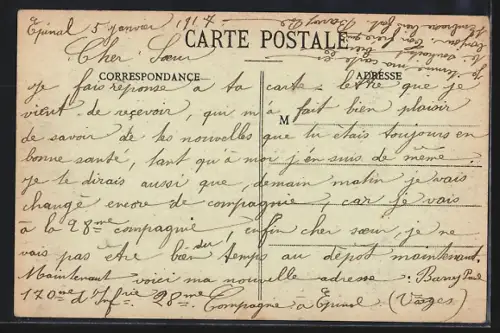 Epinal 5 Janvier 1917.
CARTE POSTALE
Cher Sœur
CORRESPONDANCE
ADRESSE
M
Je fais réponse a ta carte-lettre que je
vient de reçevoir, qui m'a fait bien plaisir
de savoir de tes nouvelles que tu étais toujours en
bonne santé, tant qu'à moi j'en suis de même.
Je te dirais aussi que, demain matin je vais
changé encore de compagnie, car je vais
à la 28me compagnie, enfin cher sœur, je ne
vais pas être bien du temps au dépot maintenant.
Maintenant voici ma nouvelle adresse: Barry Paul
170me d'Infrie 28me Compagnie à Epinal (Vosges)
Je termine ma carte en